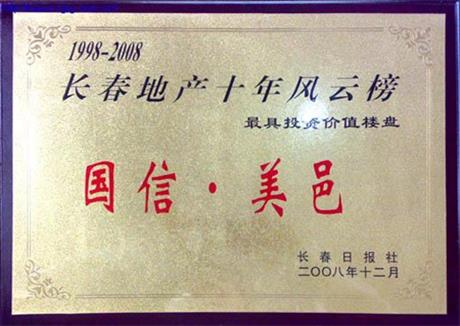 1998-2008
长春地产十年风云榜
最具投资价值楼盘
国信·美邑
长春日报社
二〇〇八年十二月